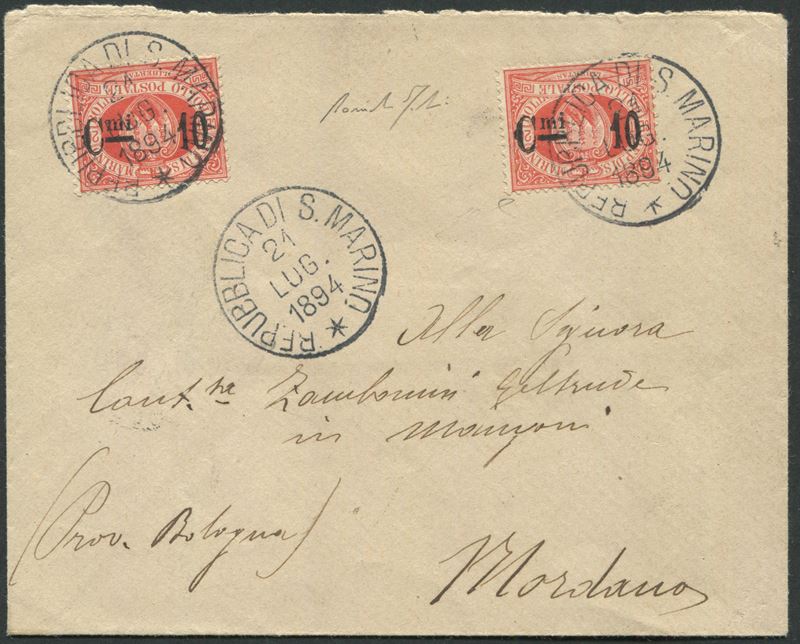 REPUBBLICA DI S. MARINO
21
LUG.
1894
Cmi 10
REPUBBLICA DI S. MARINO
LUG.
1894
Cmi 10
REPUBBLICA DI S. MARINO
21
LUG.
1894
Alla Signora
Cont.sa Zambonini Geltrude
in Manzoni
(Prov. Bologna)
Mordano